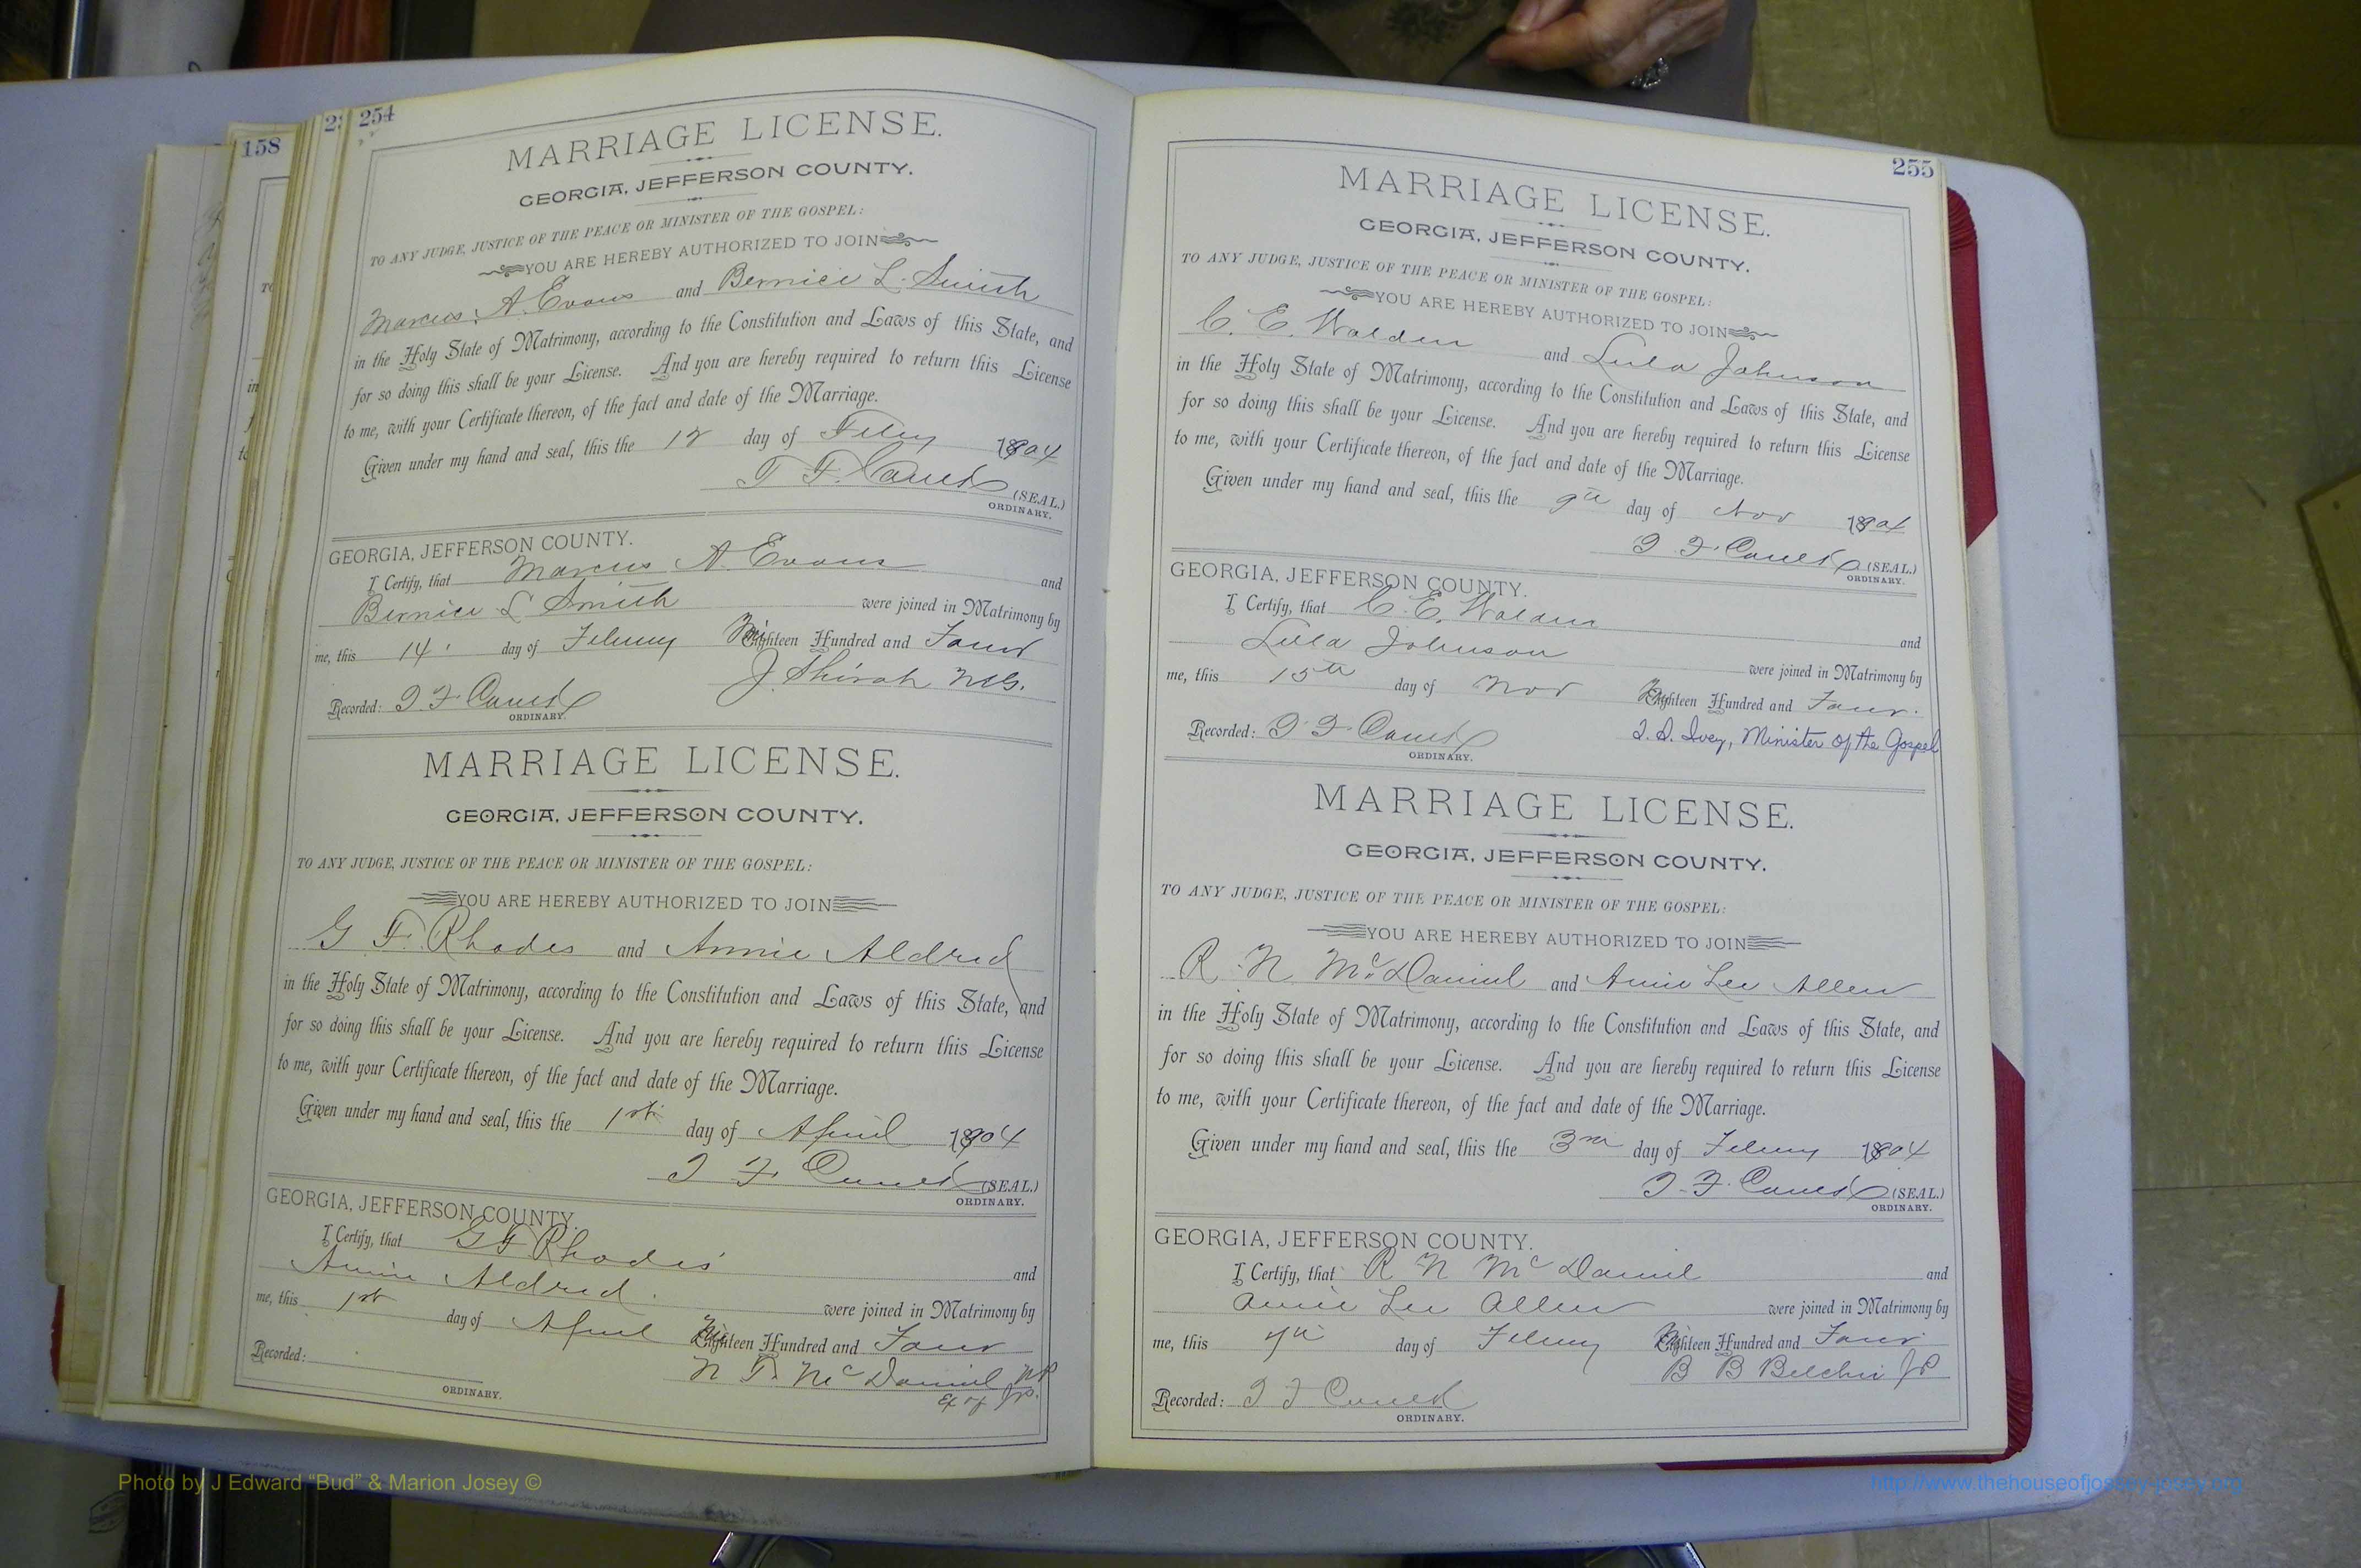 158
254
MARRIAGE LICENSE.
GEORGIA, JEFFERSON COUNTY.
TO ANY JUDGE, JUSTICE OF THE PEACE OR MINISTER OF THE GOSPEL:
YOU ARE HEREBY AUTHORIZED TO JOIN
Marcus A. Evans and Bernice L. Smith
in the Holy State of Matrimony, according to the Constitution and Laws of this State, and
for so doing this shall be your License. And you are hereby required to return this License
to me, with your Certificate thereon, of the fact and date of the Marriage.
Given under my hand and seal, this the 12 day of Feby 1904
(SEAL.)
ORDINARY.
GEORGIA, JEFFERSON COUNTY.
I Certify, that Marcus A. Evans and
Bernice L Smith were joined in Matrimony by
me, this 14 day of Hundred and Four
J. Shirah M.G.
Recorded:
ORDINARY.
MARRIAGE LICENSE.
GEORGIA, JEFFERSON COUNTY.
TO ANY JUDGE, JUSTICE OF THE PEACE OR MINISTER OF THE GOSPEL:
YOU ARE HEREBY AUTHORIZED TO JOIN
G F. Rhodes and Annie Aldred
in the Holy State of Matrimony, according to the Constitution and Laws of this State, and
for so doing this shall be your License. And you are hereby required to return this License
to me, with your Certificate thereon, of the fact and date of the Marriage.
Given under my hand and seal, this the 1st day of April 1904
(SEAL.)
ORDINARY.
GEORGIA, JEFFERSON COUNTY.
I Certify, that G F Rhodes and
Annie Aldred. were joined in Matrimony by
me, this 1st day of April Hundred and Four
N T. McDaniel NP
Recorded: Ex of JP.
ORDINARY.
255
MARRIAGE LICENSE.
GEORGIA, JEFFERSON COUNTY.
TO ANY JUDGE, JUSTICE OF THE PEACE OR MINISTER OF THE GOSPEL:
YOU ARE HEREBY AUTHORIZED TO JOIN
C. E. Walden and Lula Johnson
in the Holy State of Matrimony, according to the Constitution and Laws of this State, and
for so doing this shall be your License. And you are hereby required to return this License
to me, with your Certificate thereon, of the fact and date of the Marriage.
Given under my hand and seal, this the 9th day of Nov 1904
(SEAL.)
ORDINARY.
GEORGIA, JEFFERSON COUNTY.
I Certify, that C. E. Walden and
Lula Johnson were joined in Matrimony by
me, this 15th day of Nov Hundred and Four.
Ivey, Minister of the Gospel
Recorded:
ORDINARY.
MARRIAGE LICENSE.
GEORGIA, JEFFERSON COUNTY.
TO ANY JUDGE, JUSTICE OF THE PEACE OR MINISTER OF THE GOSPEL:
YOU ARE HEREBY AUTHORIZED TO JOIN
R. N McDaniel and Annie Lee Allen
in the Holy State of Matrimony, according to the Constitution and Laws of this State, and
for so doing this shall be your License. And you are hereby required to return this License
to me, with your Certificate thereon, of the fact and date of the Marriage.
Given under my hand and seal, this the 3rd day of 1904
(SEAL.)
ORDINARY.
GEORGIA, JEFFERSON COUNTY.
I Certify, that R N McDaniel and
Annie Lee Allen were joined in Matrimony by
me, this day of Hundred and Four
B B Belcher JP
Recorded:
ORDINARY.
Photo by J Edward “Bud” & Marion Josey ©
http://www.thehouseofjossey-josey.org